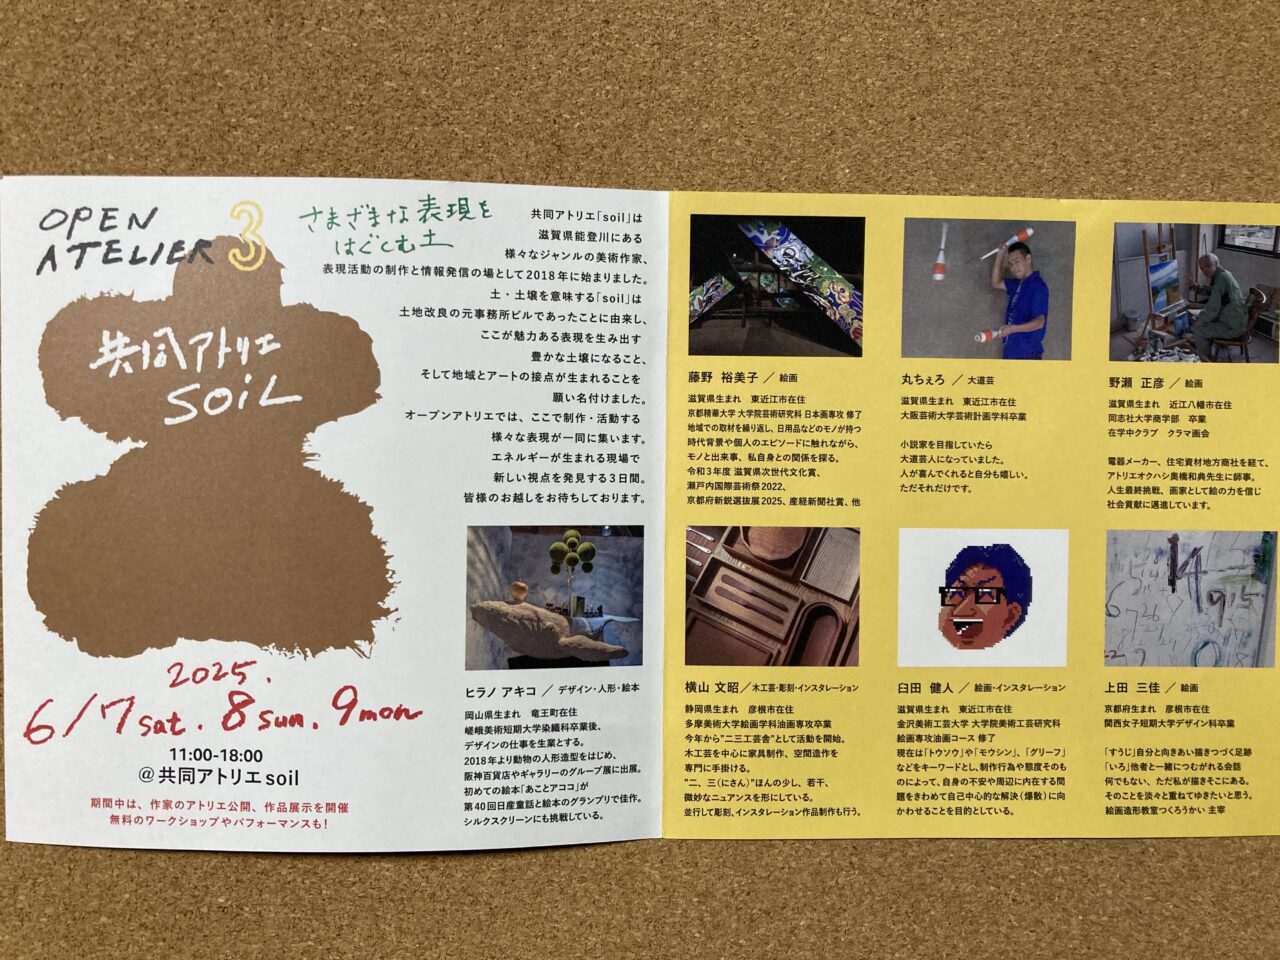 OPEN
ATELIER 3
共同アトリエ
SOIL
2025.
6/7sat. 8sun. 9mon
11:00-18:00
@共同アトリエsoil
期間中は、作家のアトリエ公開、作品展示を開催
無料のワークショップやパフォーマンスも!
さまざまな表現を
はぐくむ土
共同アトリエ「soil」は
滋賀県能登川にある
様々なジャンルの美術作家、
表現活動の制作と情報発信の場として2018年に始まりました。
土・土壌を意味する「soil」は
土地改良の元事務所ビルであったことに由来し、
ここが魅力ある表現を生み出す
豊かな土壌になること、
そして地域とアートの接点が生まれることを
願い名付けました。
オープンアトリエでは、ここで制作・活動する
様々な表現が一同に集います。
エネルギーが生まれる現場で
新しい視点を発見する3日間。
皆様のお越しをお待ちしております。
ヒラノ アキコ / デザイン・人形・絵本
岡山県生まれ 竜王町在住
嵯峨美術短期大学染織科卒業後、
デザインの仕事を生業とする。
2018年より動物の人形造形をはじめ、
阪神百貨店やギャラリーのグループ展に出展。
初めての絵本「あことアココ」が
第40回日産童話と絵本のグランプリで佳作。
シルクスクリーンにも挑戦している。
藤野 裕美子 / 絵画
滋賀県生まれ 東近江市在住
京都精華大学 大学院芸術研究科 日本画専攻 修了
地域での取材を繰り返し、日用品などのモノが持つ
時代背景や個人のエピソードに触れながら、
モノと出来事、私自身との関係を探る。
令和3年度 滋賀県次世代文化賞、
瀬戸内国際芸術祭2022、
京都府新鋭選抜展2025、産経新聞社賞、他
丸ちぇろ / 大道芸
滋賀県生まれ 東近江市在住
大阪芸術大学芸術計画学科卒業
小説家を目指していたら
大道芸人になっていました。
人が喜んでくれると自分も嬉しい。
ただそれだけです。
野瀬 正彦 / 絵画
滋賀県生まれ 近江八幡市在住
同志社大学商学部 卒業
在学中クラブ クラマ画会
電器メーカー、住宅資材地方商社を経て、
アトリエオクハシ奥橋和典先生に師事。
人生最終挑戦、画家として絵の力を信じ
社会貢献に邁進しています。
横山 文昭/木工芸・彫刻・インスタレーション
静岡県生まれ 彦根市在住
多摩美術大学絵画学科油画専攻卒業
今年から"二三工芸舎"として活動を開始。
木工芸を中心に家具制作、空間造作を
専門に手掛ける。
"二、三(にさん)"ほんの少し、若干、
微妙なニュアンスを形にしている。
並行して彫刻、インスタレーション作品制作も行う。
臼田 健人 / 絵画・インスタレーション
滋賀県生まれ 東近江市在住
金沢美術工芸大学 大学院美術工芸研究科
絵画専攻油画コース 修了
現在は「トウソウ」や「モウシン」、「グリーフ」
などをキーワードとし、制作行為や態度そのも
のによって、自身の不安や周辺に内在する問
題をきわめて自己中心的な解決(爆散)に向
かわせることを目的としている。
上田 三佳 / 絵画
京都府生まれ 彦根市在住
関西女子短期大学デザイン科卒業
「すうじ」自分と向きあい描きつづく足跡
「いろ」他者と一緒につむがれる会話
何でもない、ただ私が描きそこにある。
そのことを淡々と重ねてゆきたいと思う。
絵画造形教室つくろうかい 主宰